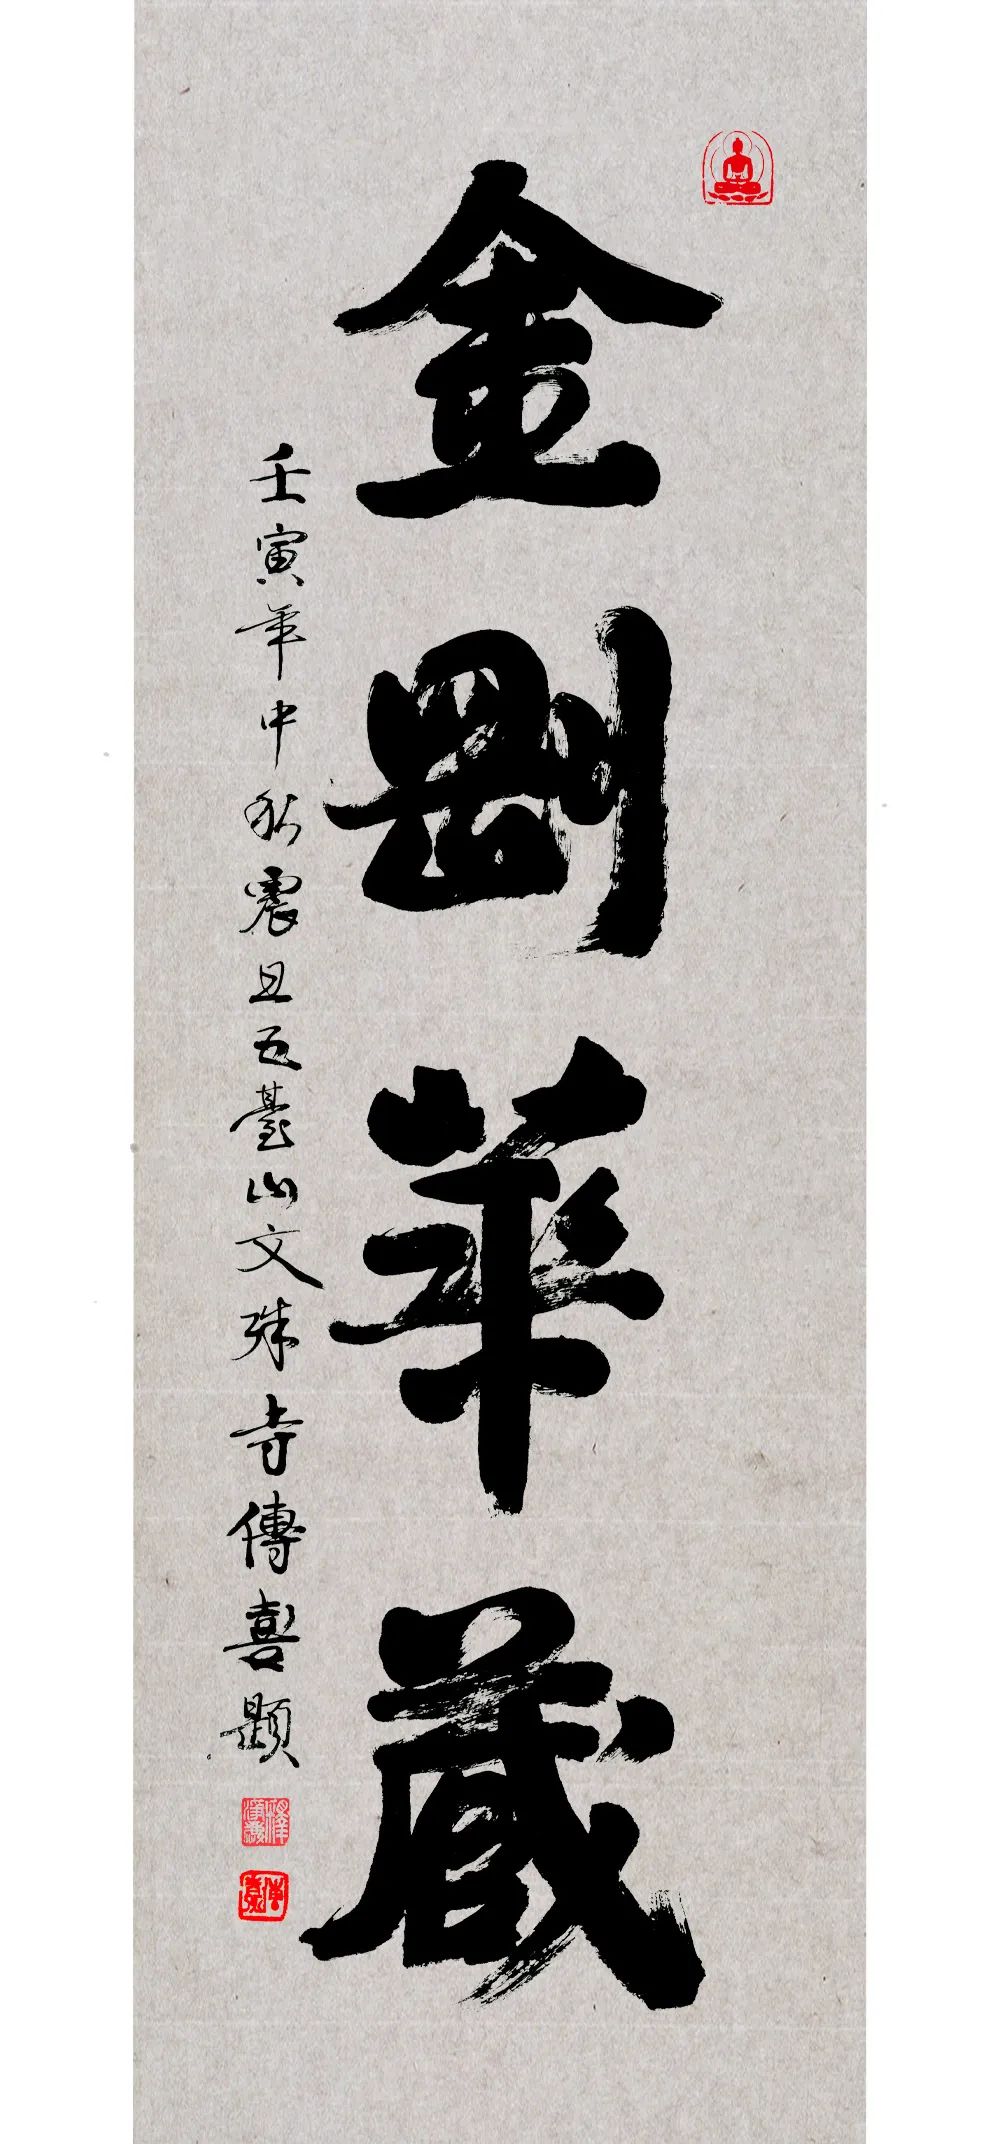 金剛華藏
壬寅年中秋震旦五臺山文殊寺傳喜題